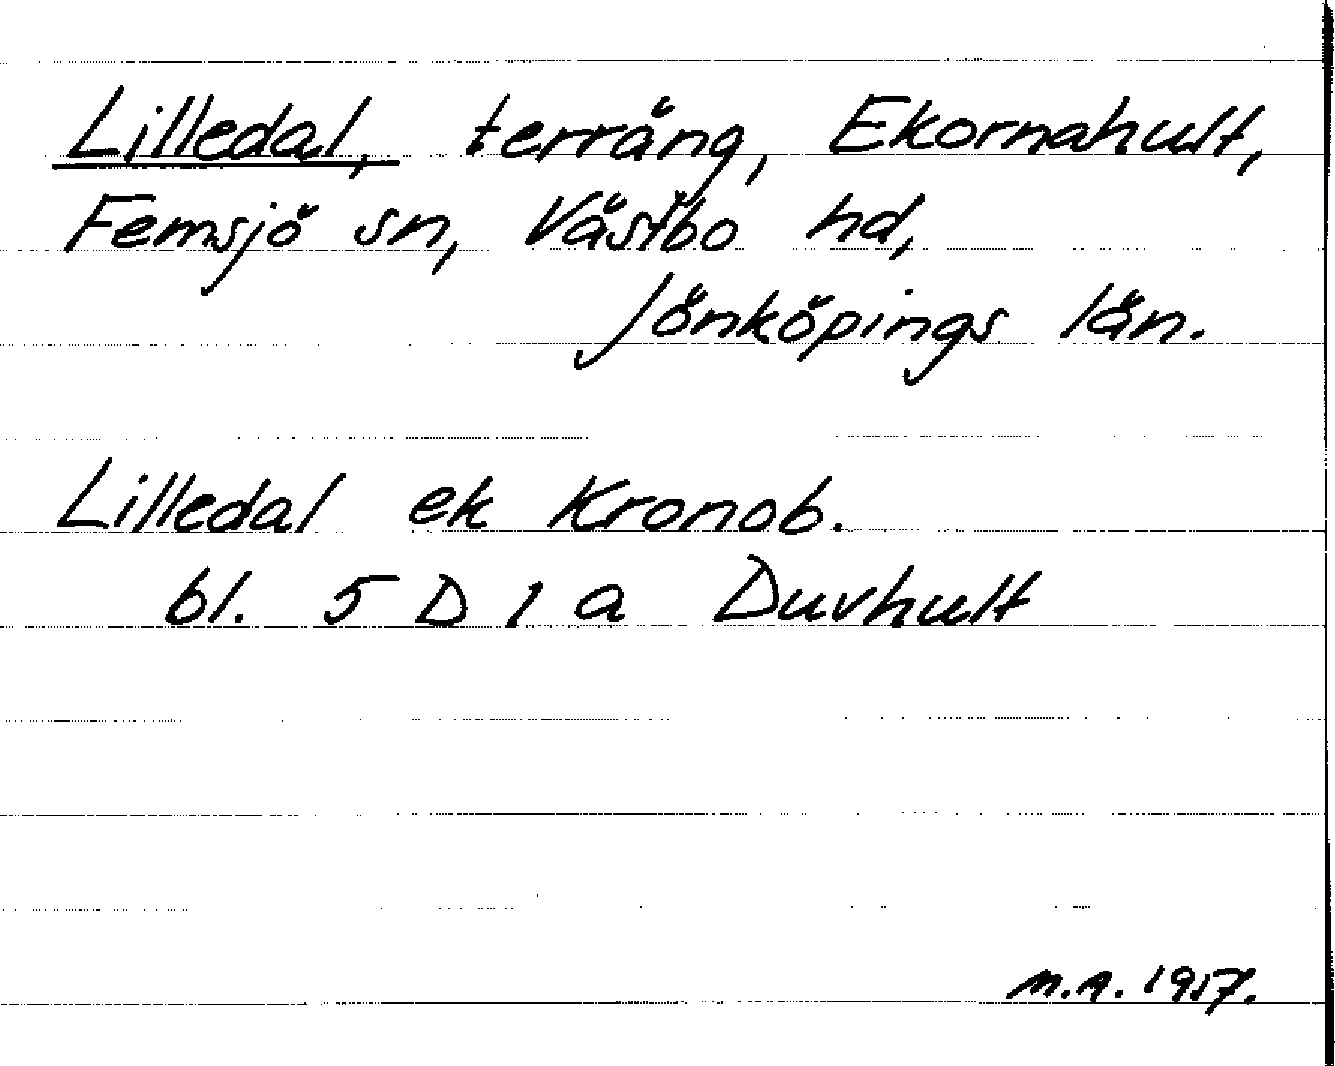 Lilledal, terräng, Ekornahult,
Femsjö sn, Västbo hd,
Jönköpings län.
Lilledal ek Kronob.
bl. 5 D 1 a Duvhult
M.A. 1957.